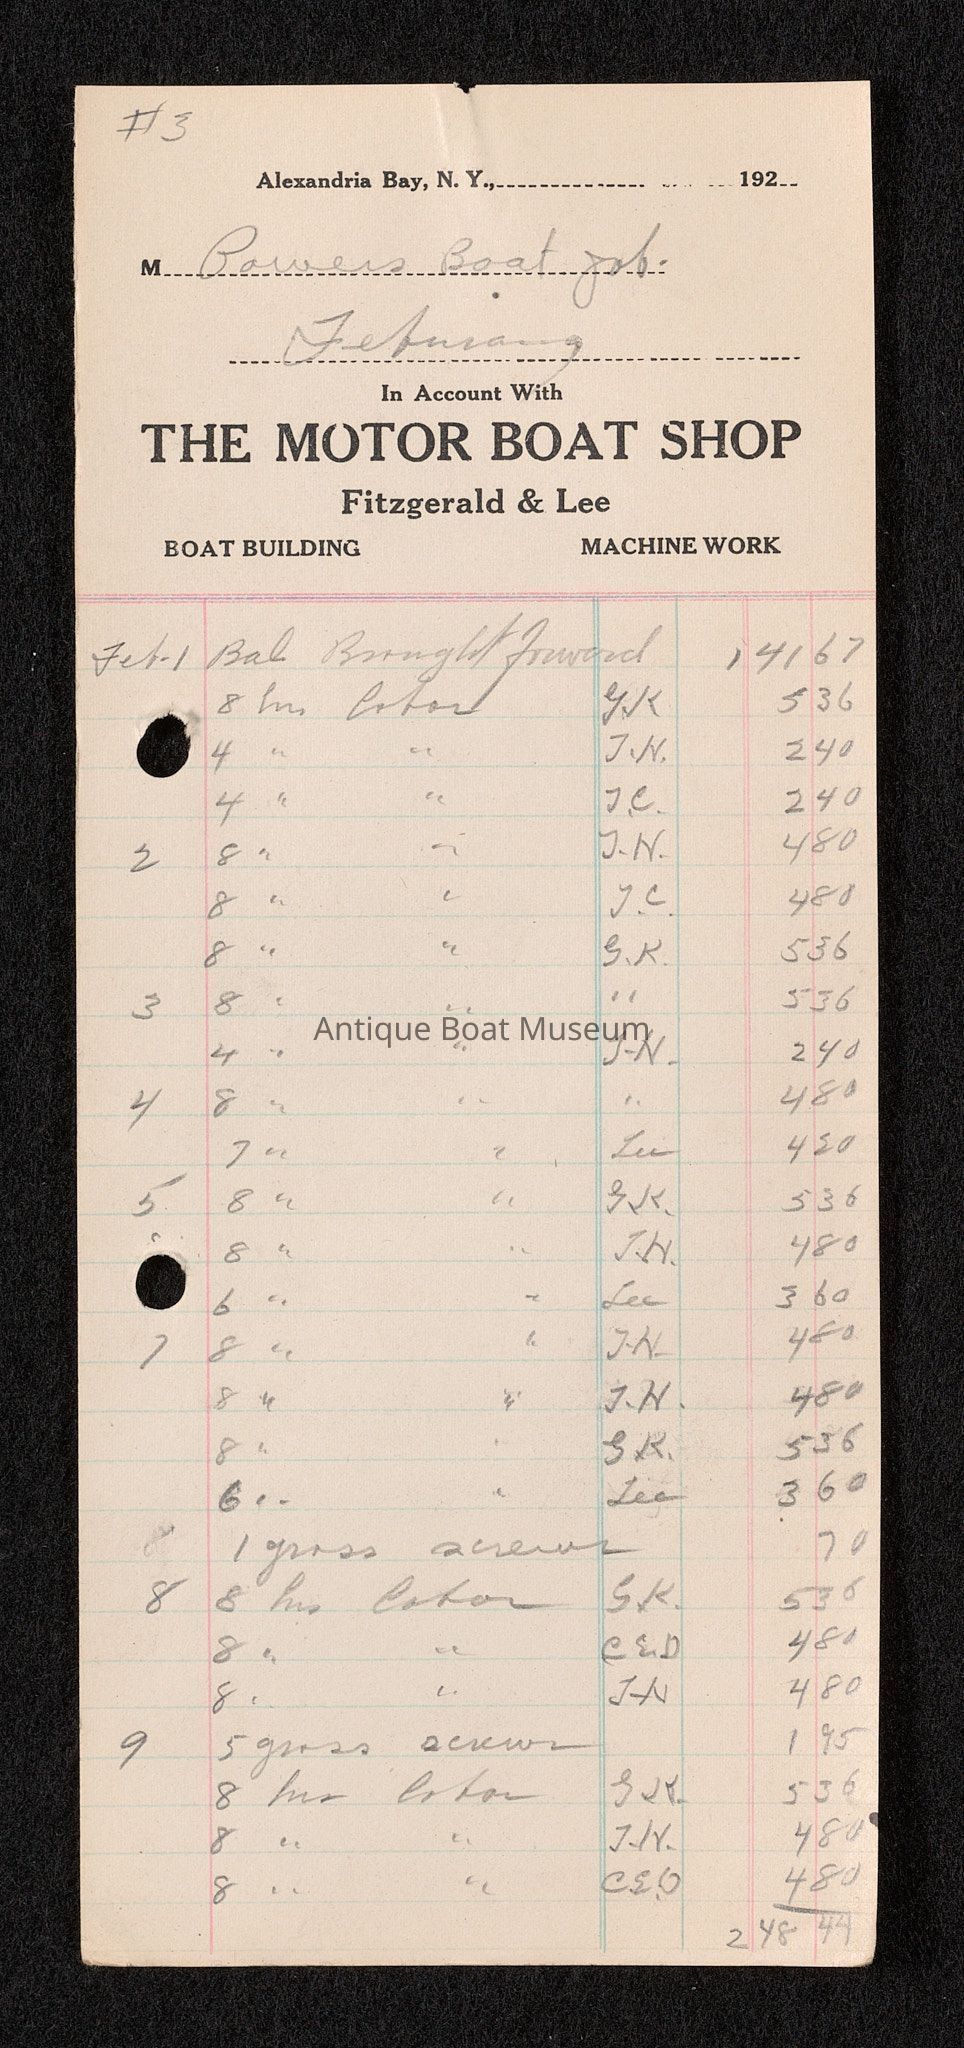 #3
Alexandria Bay, N. Y., 192
M Powers Boat Job.
February
In Account With
THE MOTOR BOAT SHOP
Fitzgerald & Lee
BOAT BUILDING MACHINE WORK
Feb. 1 Bal Brought Forward 141 67
8 hrs labor G.K 5 36
4 " " J.N. 2 40
4 " " J.C. 2 40
2 8 " " J.N. 4 80
8 " " J.C. 4 80
8 " " G.K. 5 36
3 8 " " " 5 36
Antique Boat Museum
4 " " J.N. 2 40
4 8 " " " 4 80
7 " " Lee 4 20
5 8 " " G.K. 5 36
" 8 " " J.N. 4 80
6 " " Lee 3 60
7 8 " " J.N. 4 80
8 " " J.N. 4 80
8 " " G.K. 5 36
6 " " Lee 3 60
8 1 gross screws 70
8 8 hrs labor G.K. 5 36
8 " " C.E.D 4 80
8 " " J.N 4 80
9 5 gross screws 1 95
8 hrs labor G.K. 5 36
8 " " J.N. 4 80
8 " " C.E.D 4 80
248 44